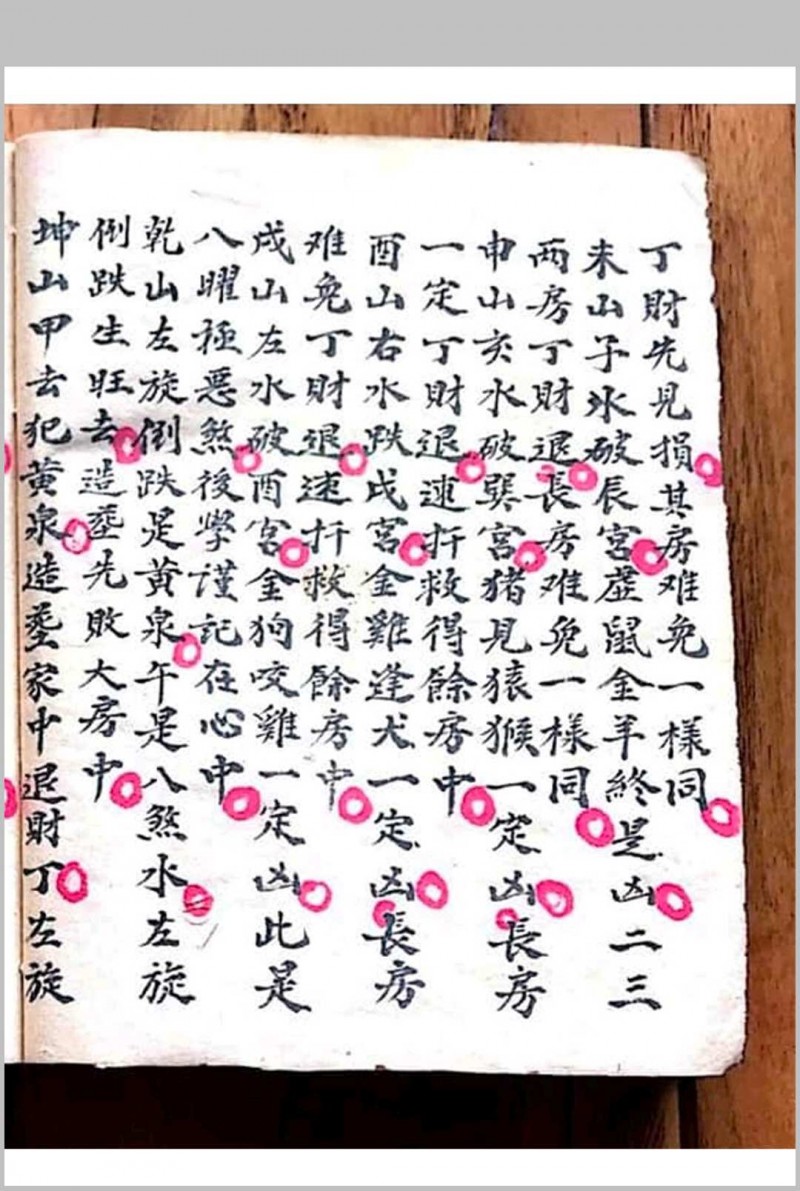 丁財先見損其房难免一樣同
未山子水破辰宮虛鼠金羊終是凶二三
两房丁財退長房难免一樣同
申山亥水破巽宮猪見猿猴一定凶長房
一定丁財退速扦救得餘房中
酉山右水跌戌宮金雞逢犬一定凶長房
难免丁財退速扦救得餘房中
戌山左水破酉宮金狗咬雞一定凶此是
八曜極惡煞後學謹記在心中
乾山左旋倒跌是黄泉午是八煞水左旋
倒跌生旺去造塟先敗大房中
坤山甲去犯黄泉造塟家中退財丁左旋